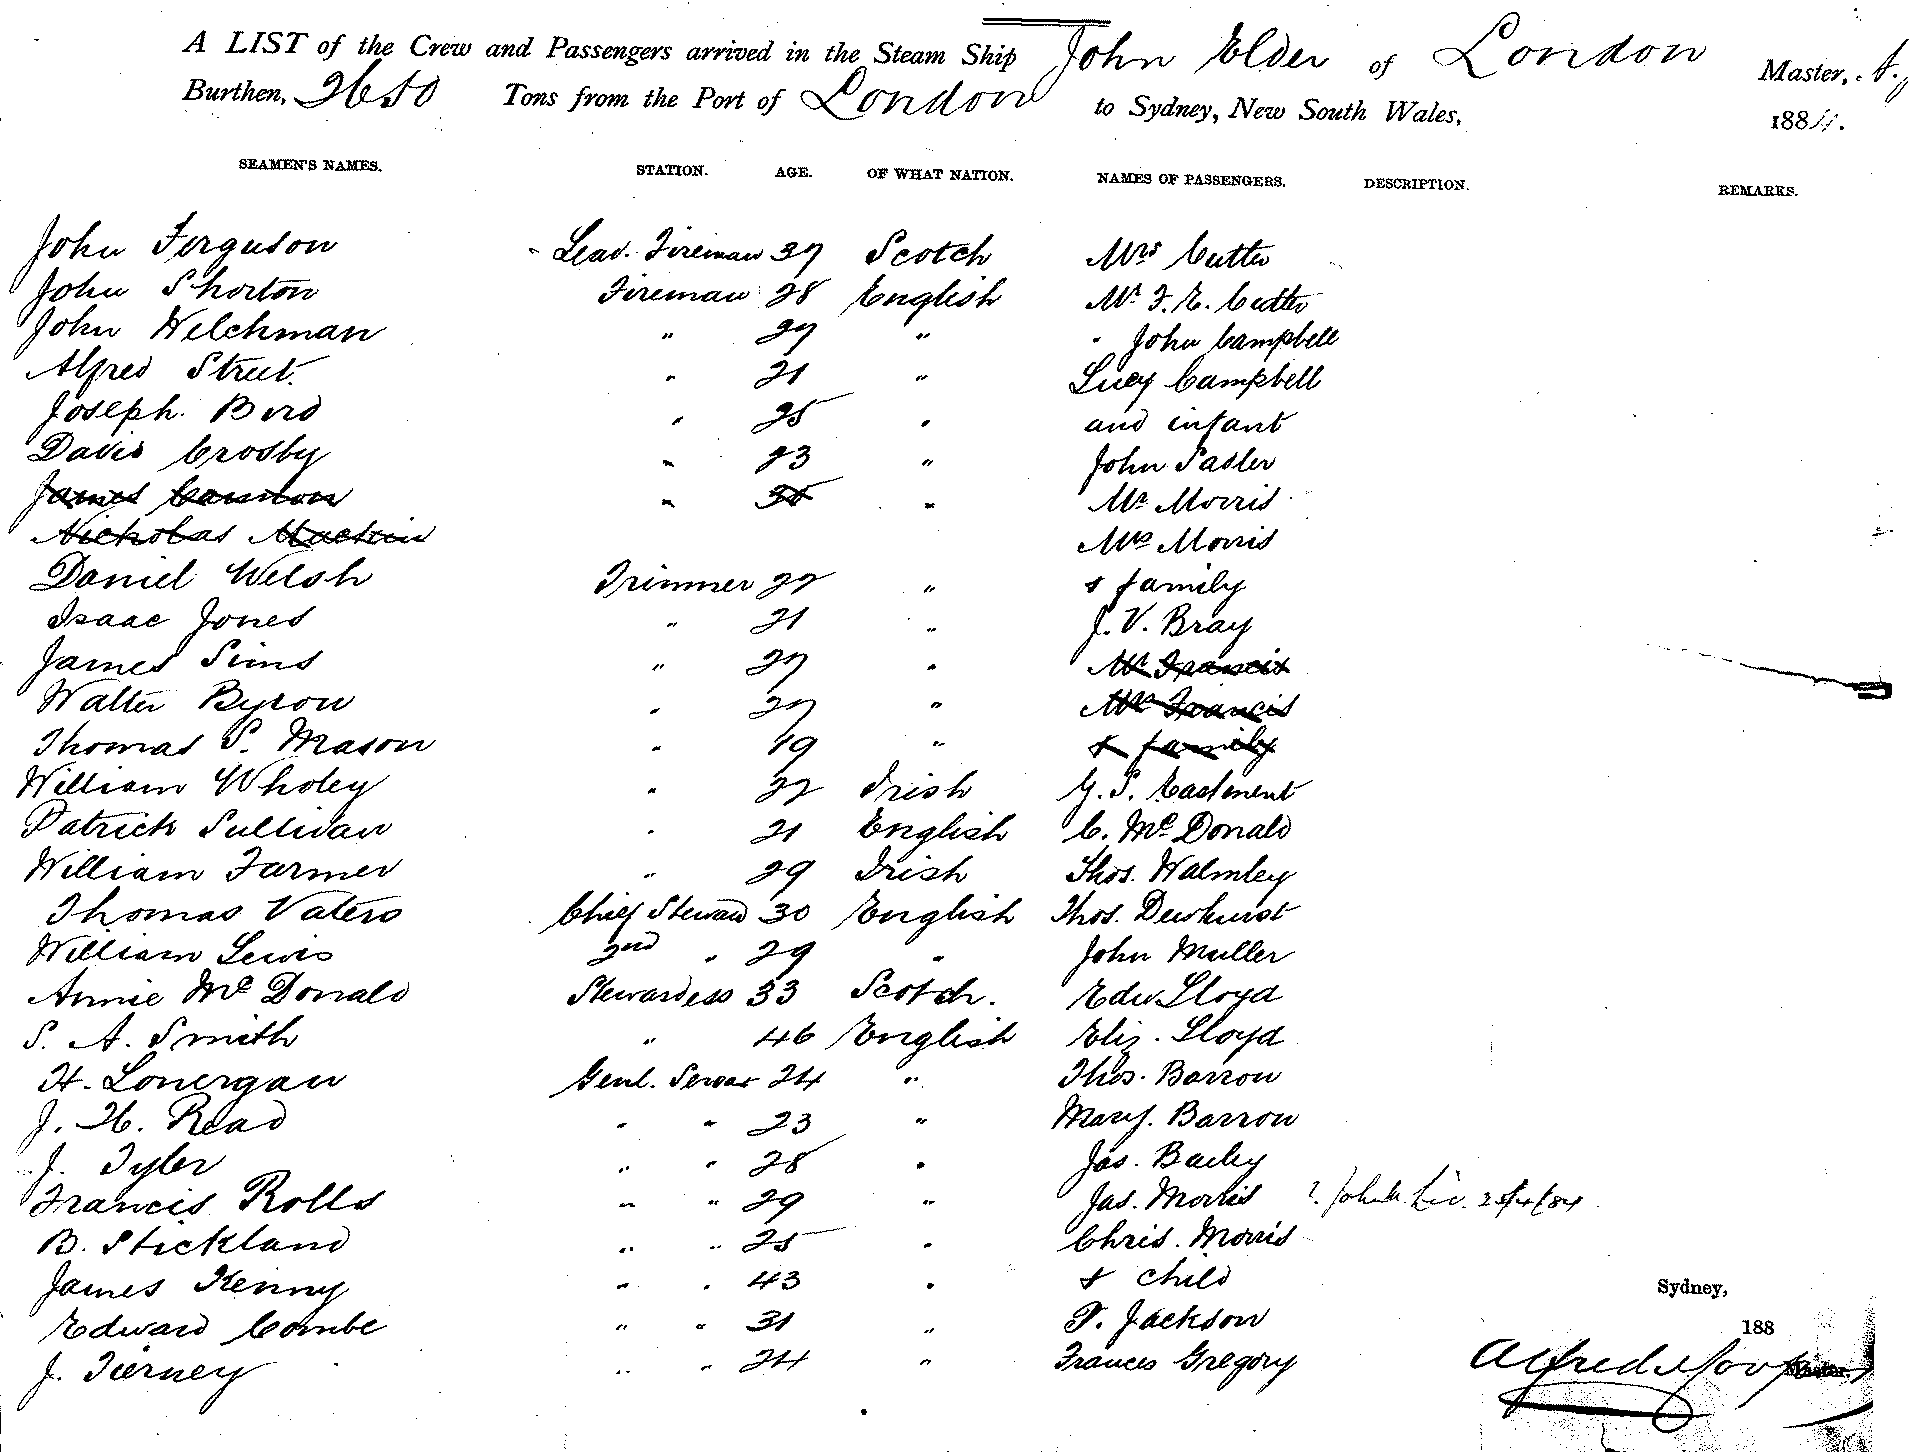 A LIST of the Crew and Passengers arrived in the Steam Ship John Elder of London Master, A.
Burthen, 2650 Tons from the Port of London to Sydney, New South Wales, 1884.
SEAMEN'S NAMES. STATION. AGE. OF WHAT NATION. NAMES OF PASSENGERS. DESCRIPTION. REMARKS.
John Ferguson Lead. Fireman 37 Scotch Mrs Cutter
John Shorton Fireman 28 English Mr F. E. Cutter
John Welchman " 27 " " John Campbell
Alfred Street. " 21 " Lucy Campbell
Joseph Bird " 25 " and infant
David Crosby " 23 " John Sadler
James Cannon " 30 " Mr Morris
Nicholas Mrs Morris
Daniel Welsh Trimmer 22 " & family
Isaac Jones " 21 " J. V. Bray
James Sims " 27 " Mr Francis
Walter Byron " 27 " Mrs Francis
Thomas S. Mason " 19 " & family
William Wholey " 22 Irish G. S. Eastment
Patrick Sullivan " 21 English C. McDonald
William Farmer " 29 Irish Thos. Walmley
Thomas Vaters Chief Steward 30 English Thos. Dewhurst
William Lewis 2nd " 29 " John Muller
Annie McDonald Stewardess 33 Scotch. Edw Lloyd
S. A. Smith " 46 English Eliz. Lloyd
H. Lonergan Genl. Servar 24 " Thos. Barron
J. H. Read " " 23 " Mary. Barron
J. Tyler " " 28 " Jas. Baily
Francis Rolls " " 29 " Jas. Morris ? 25/4/84
B. Stickland " " 25 " Chris. Morris
James Kenny " " 43 " & child
Edward Combe " " 31 " T. Jackson
J. Tierney " " 24 " Frances Gregory
Sydney,
188
Alfred Master.